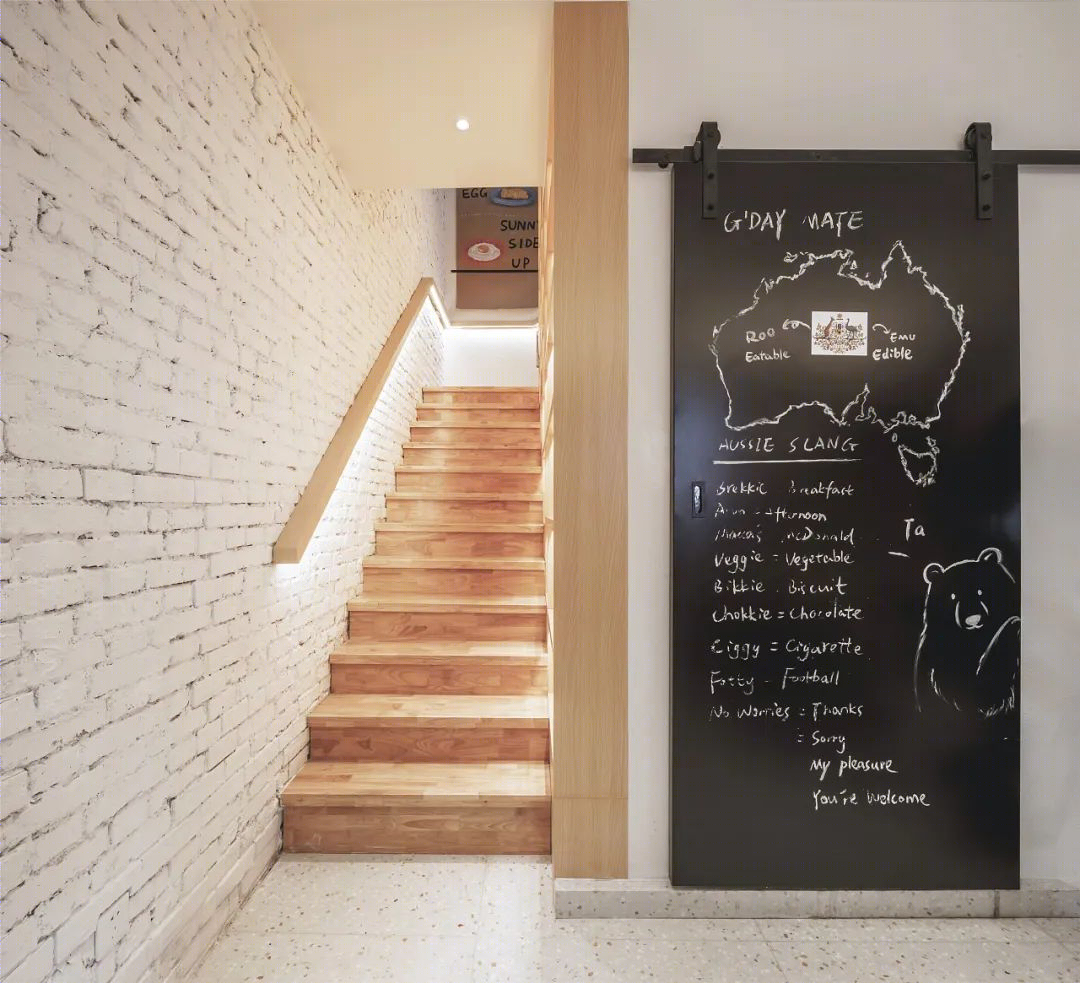 EGG
SUNNY
SIDE
UP
G'DAY MATE
Roo
Eatable
Emu
Edible
AUSSIE SLANG
Brekkie Breakfast
- Afternoon
McDonald
Veggie = Vegetable
Bikkie . Biscuit
Chokkie = Chocolate
Ciggy = Cigarette
Footy - Football
No Worries = Thanks
= Sorry
My pleasure
You're Welcome
Ta